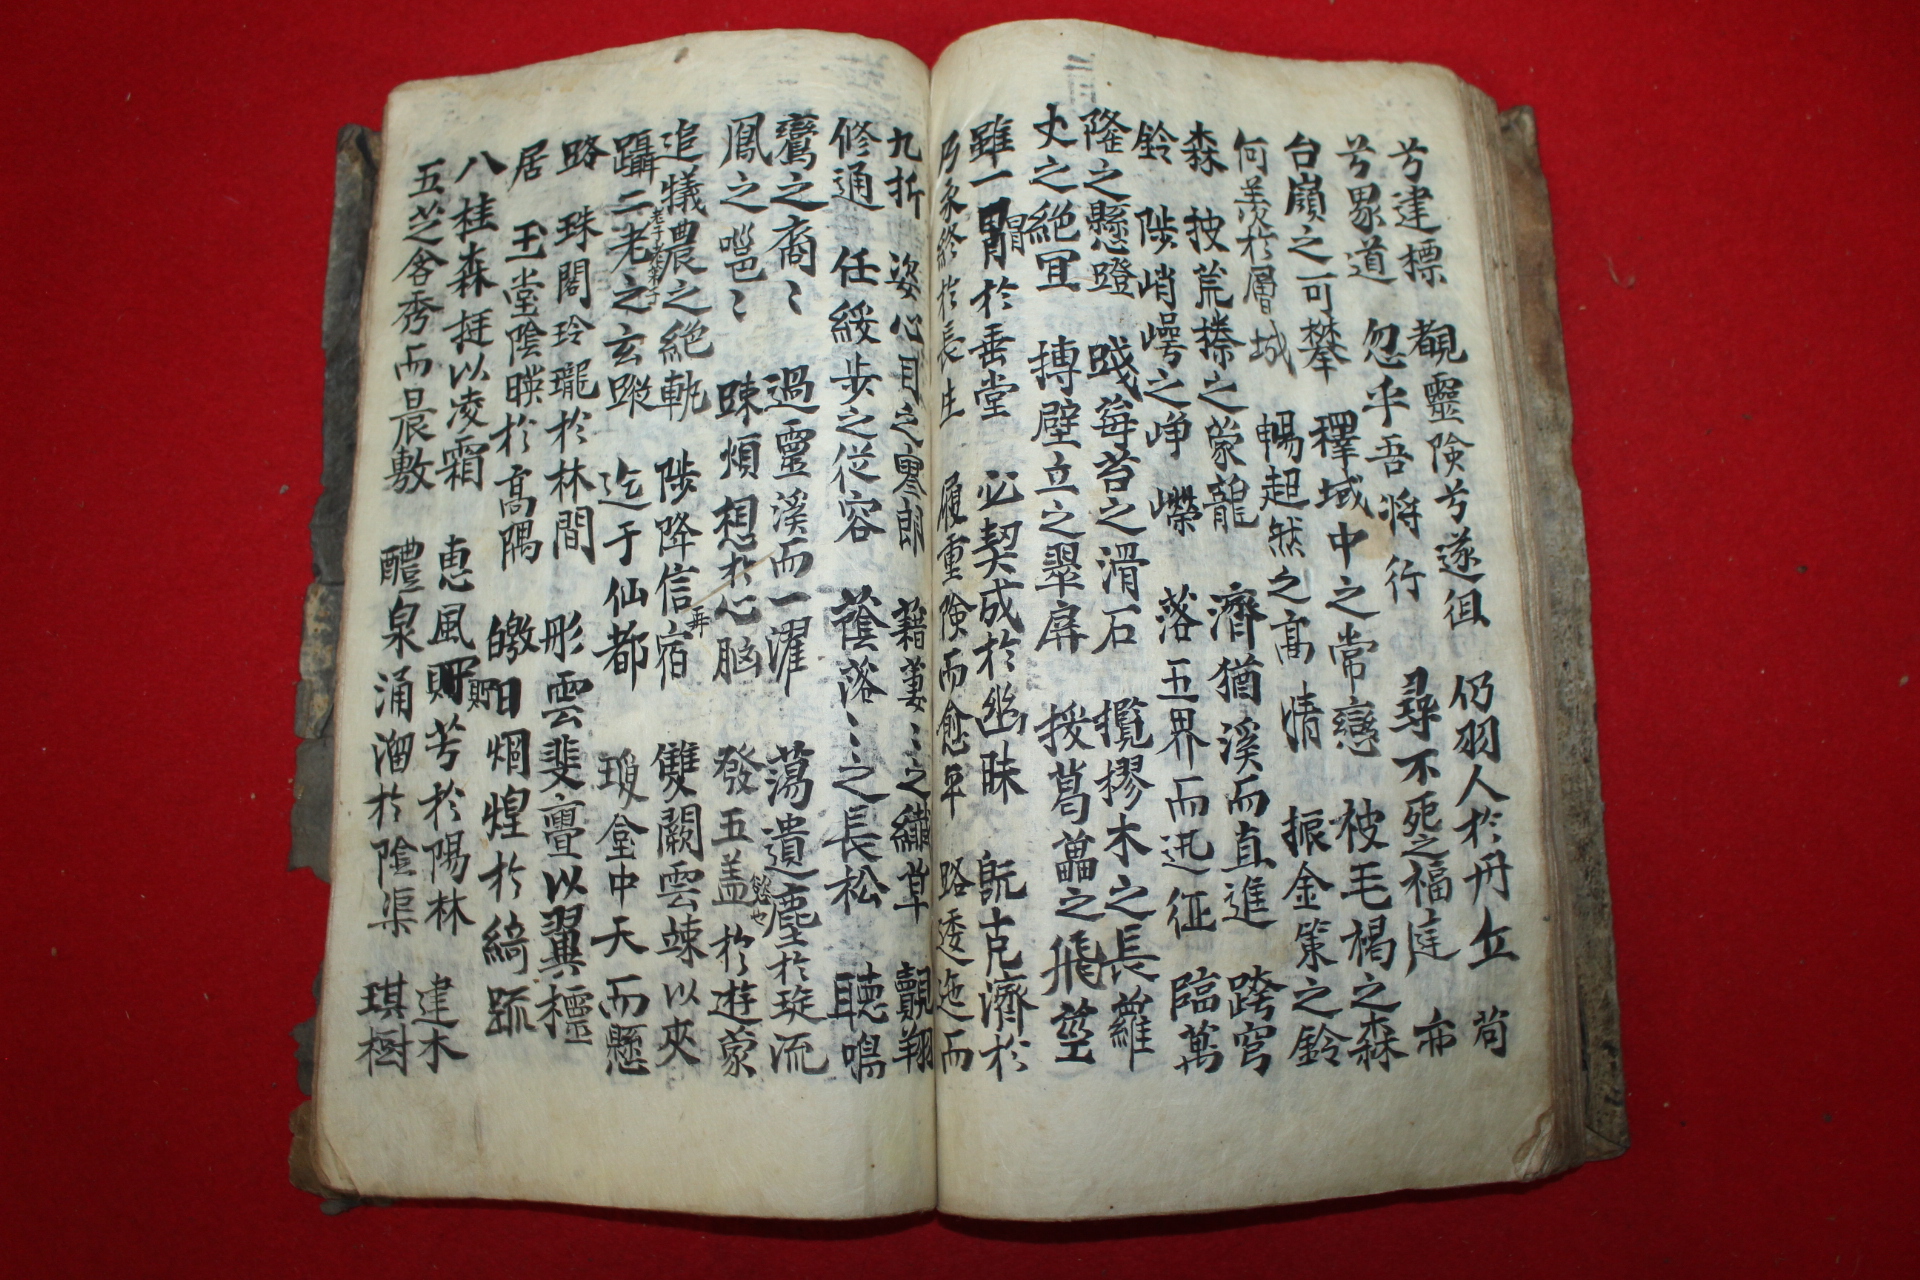 兮建標 覩靈險兮遂徂 仍羽人於丹丘 苟
兮界道 忽乎吾將行 尋不死之福庭 亦
台嶺之可攀 釋域中之常戀 被毛褐之森
何羨於層城 暢超然之高情 振金策之鈴
森 披荒榛之蒙蘢 濟猶溪而直進 跨穹
鈴 陟峭崿之崢嶸 落五界而迅征 臨萬
隆之懸磴 踐莓苔之滑石 攬樛木之長蘿
丈之絶冥 搏壁立之翠屛 援葛藟之飛莖
雖一冒於垂堂 必契成於幽昧 旣克濟於
乃永終於長生 履重險而愈平 路逶迤而
九折 姿心目之寥朗 藉萋〻之纖草 覿翔
修通 任緩步之從容 蔭落〻之長松 聽鳴
鸞之裔〻 過靈溪而一濯 蕩遺塵於琁流
鳳之嗈〻 踈煩想於心脳 發五盖於遊蒙
追犧農之絶軌 陟降信宿 雙闕雲竦以夾
躡二老之玄蹤 迄于仙都 瓊䑓中天而懸
路 珠閣玲瓏於林間 彤雲斐亹以翼櫺
居 玉堂陰暎於高隅 皦日烱煌於綺䟽
八桂森挺以凌霜 惠風貯芳於陽林 建木
五芝含秀而晨敷 醴泉涌溜於陰渠 琪樹